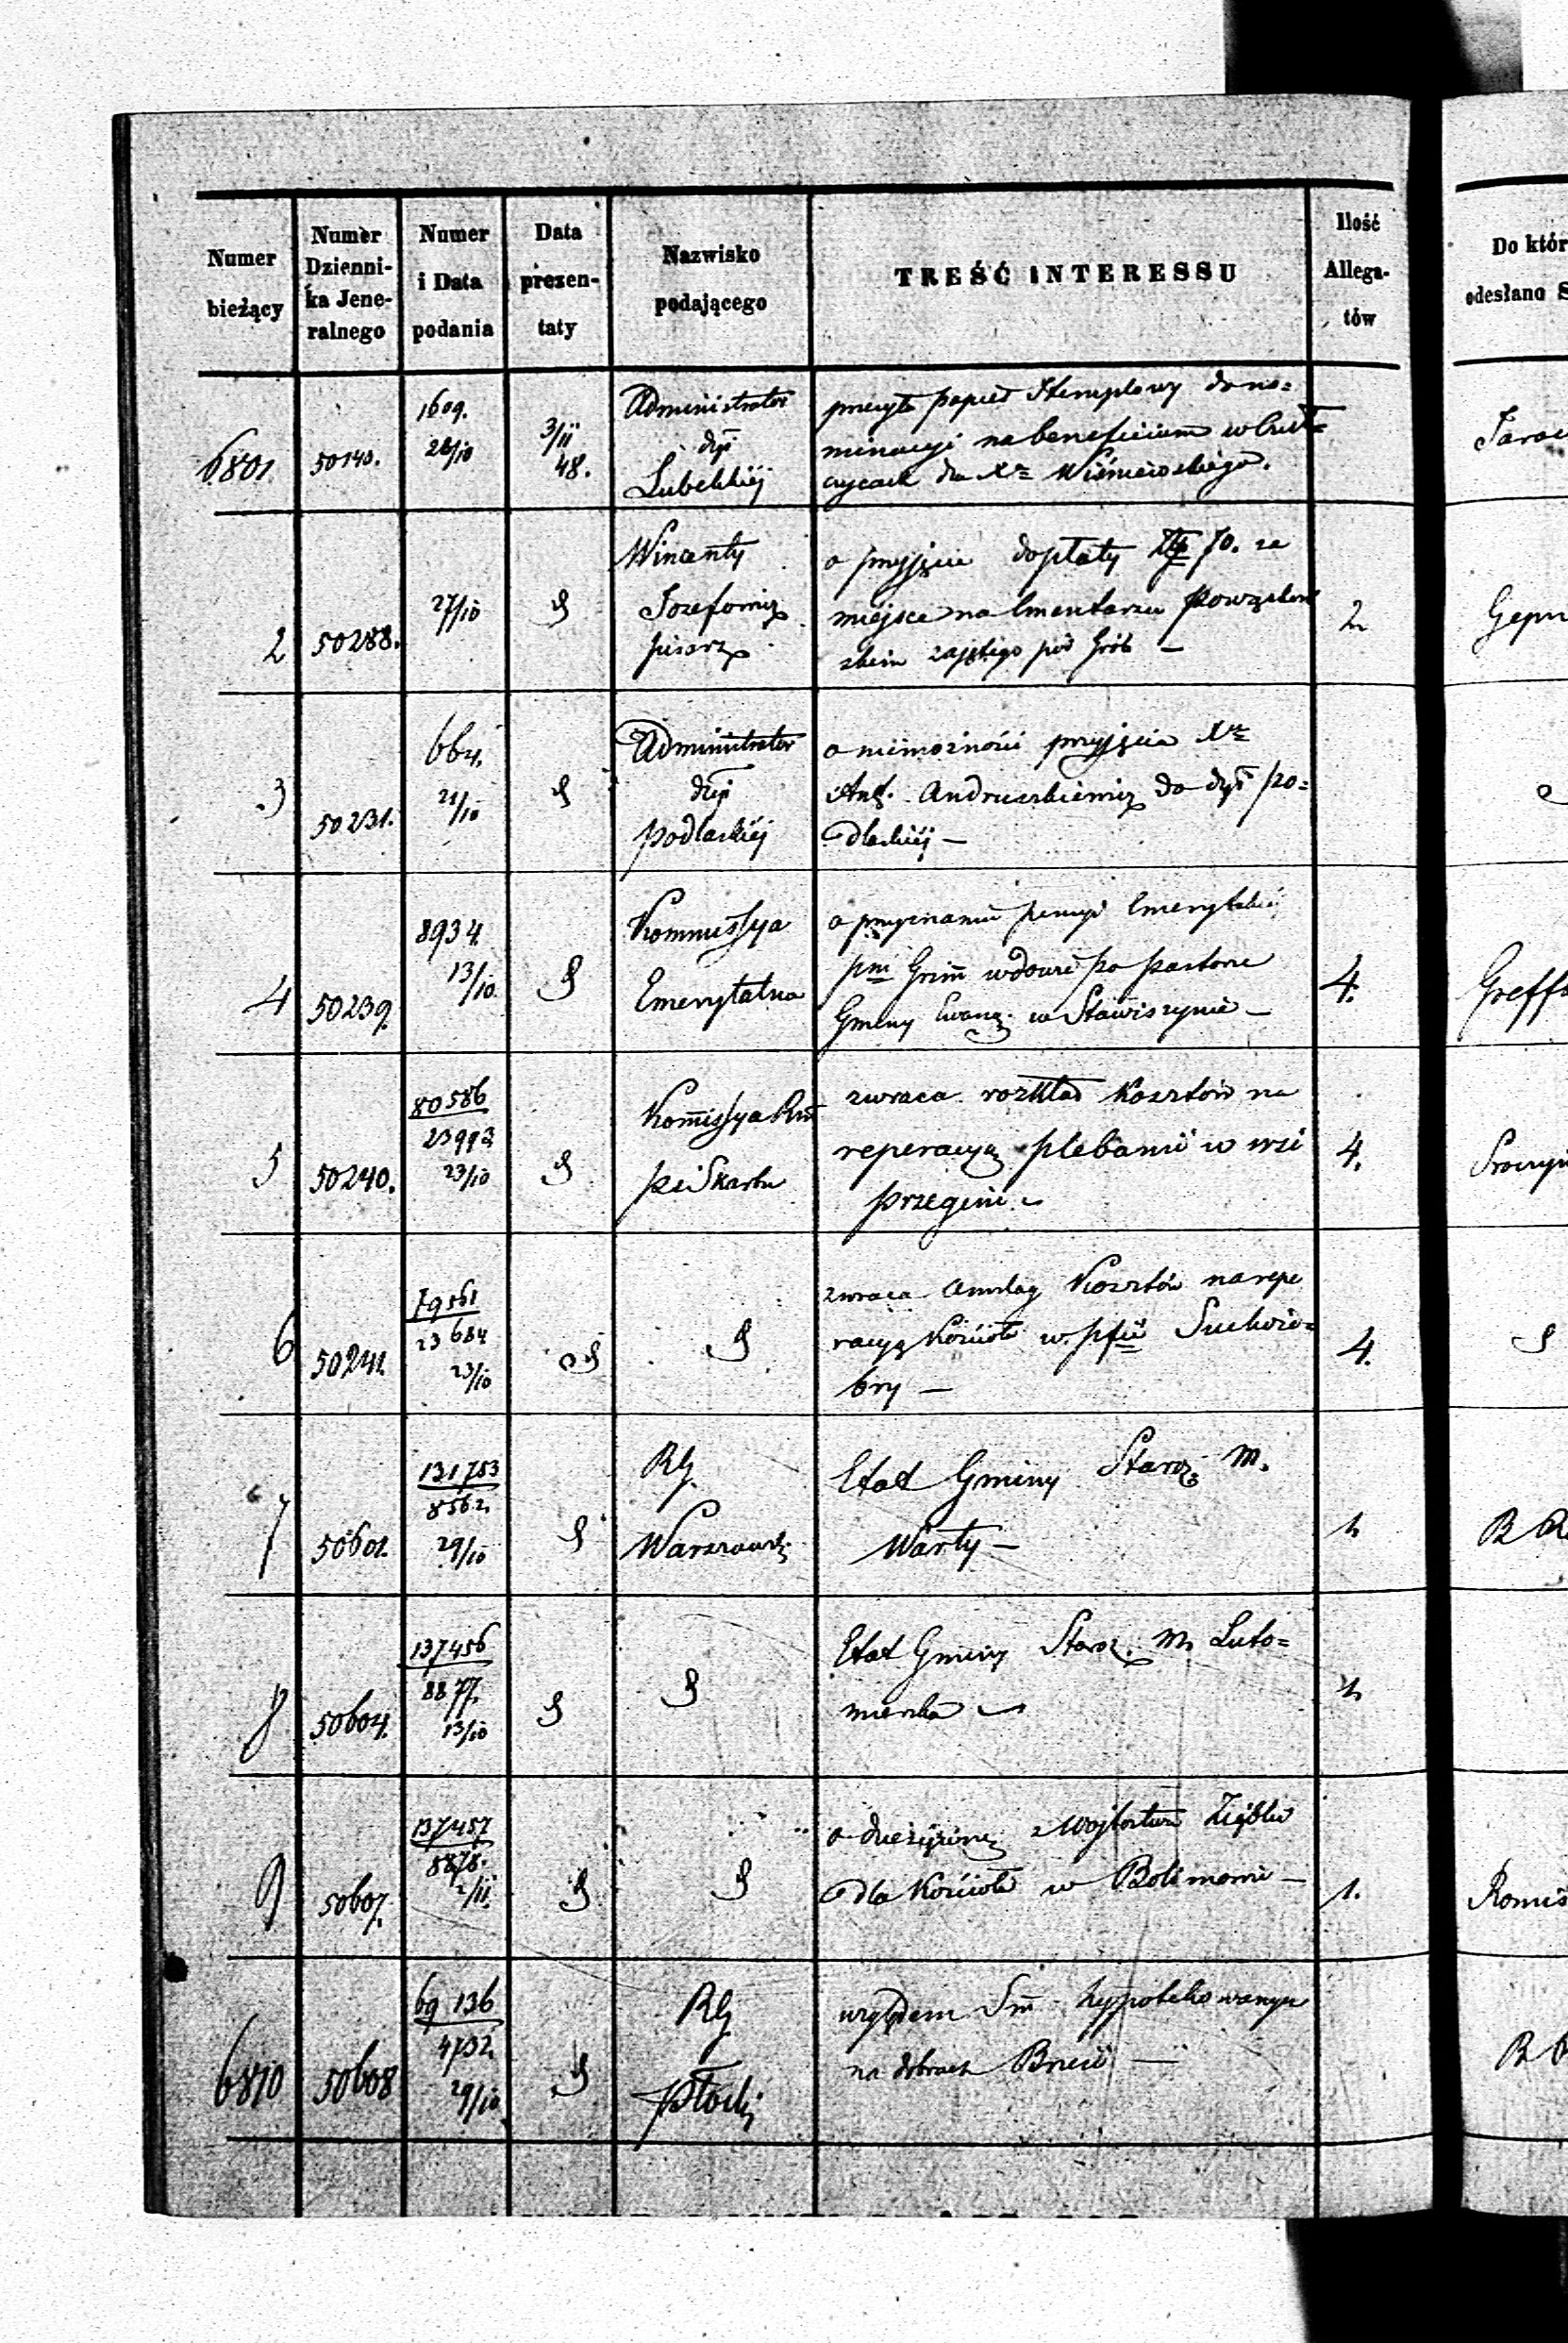 Numer bieżący
Numer Dziennika Jeneralnego
Numer i Data podania
Data prezentaty
Nazwisko podającego
TREŚĆ INTERESSU
Ilość Allegatów
Do któr
odesłano S
6801
50140.
1609.
28/10
3/11
48.
Administrator
dyi
Lubelskiéj
papier Stemplowy do no=
minacyi na beneficium w
dla Xa Wiśniewskiego.
2
50288.
27/10
Wincenty
Jozefowicz
pisarz
o przyjęcie dopłaty Złp 70. za
miejsce na Cmentarzu Powązkow
skim zajętego pod Grób —
2
3
50231.
664.
21/10
Administrator
dyi
Podlaskiéj
o niemożności przyjęcia Xa
Ant. Andruszkiewicz do dyi Po=
dlaskiéj —
4
50239.
8934
13/10.
Kommissya
Emerytalna
o przyznanie pensyi Emerytalnéj
pni Grimm wdowie po pastorze
Gminy Ewang. w Stawiszynie —
4.
5
50240.
80586
23993
23/10
Komissya Rzą
Skarbu
zwraca rozkład Kosztów na
reperacyą plebanii w wsi
Przegini
4.
6
50241.
79561
23684
23/10
zwraca Anszlag Kosztów na repe
racyą Kościoła w
Suchożebry —
4.
7
50601.
131753
8562
29/10
RG.
Warszawski
Etat Gminy Staroz. M.
Warty —
1
R
8
50604.
137456
8877.
13/10
Etat Gminy Staroz. M. Luto=
mierska
9
50607.
137457
8878.
2/11.
o dziesięcinę z Wojtostwa
dla Kościoła w Bolimowie —
1.
6810
50608
69136
4732
29/10
RG
Płocki
względem Sm hypotekowanych
na dobrach